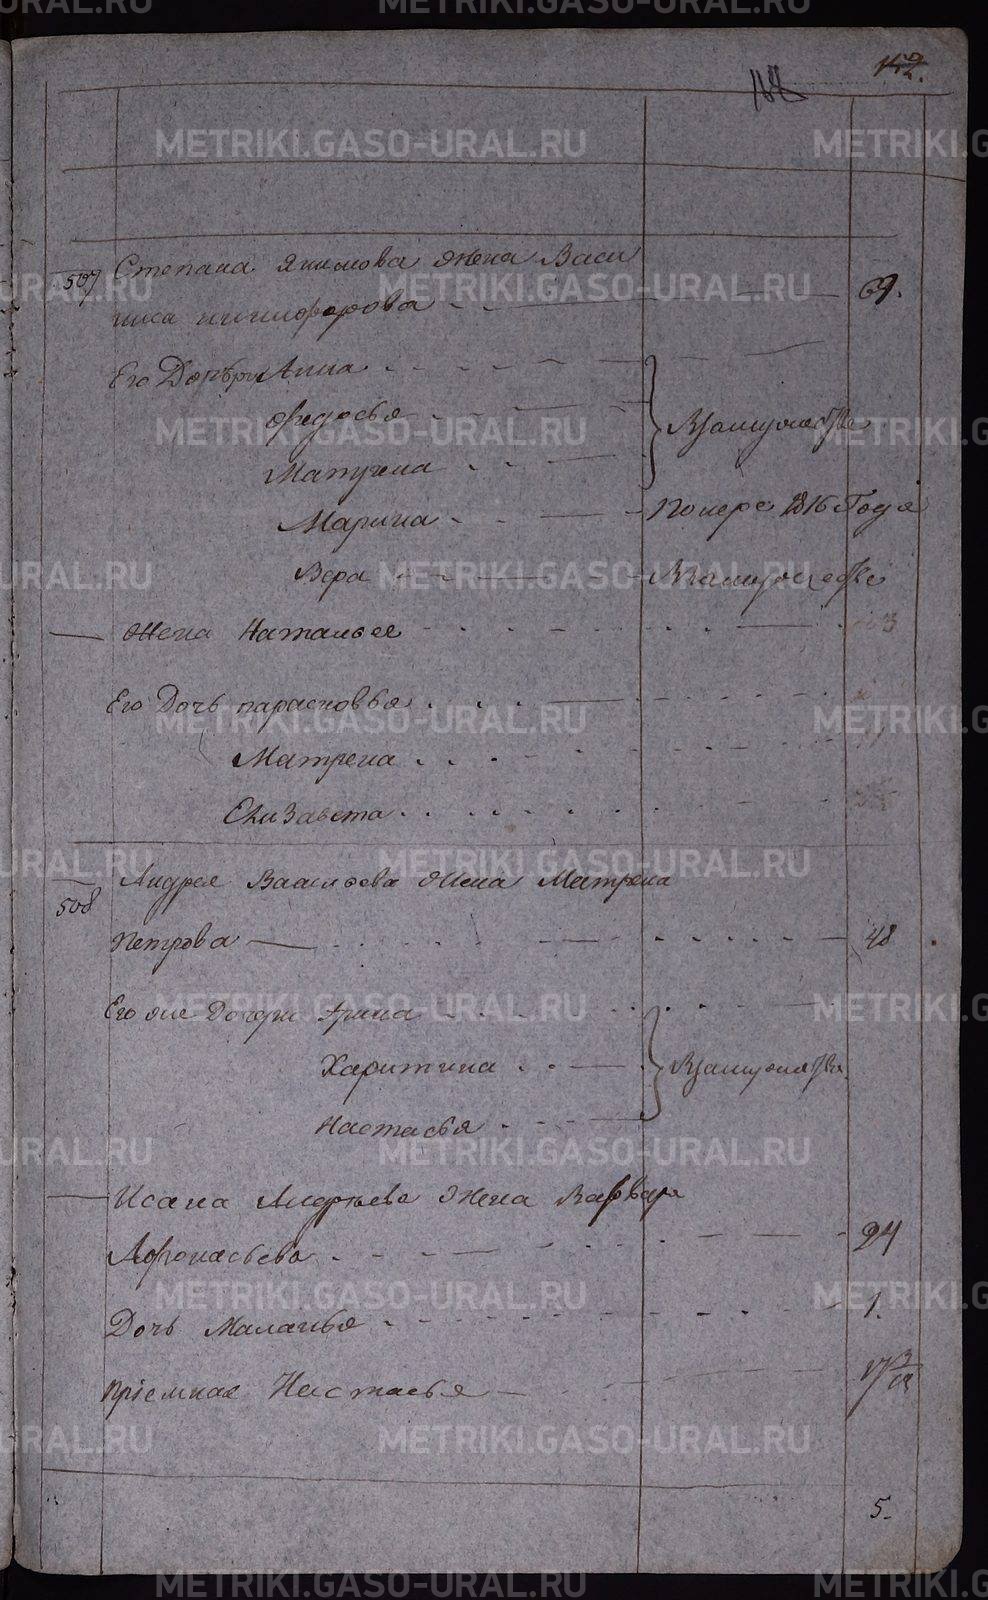 152.
507 Степана Якимова жена Васи
лиса никифорова 69.
Его Дочери Анна
Федосья
Матрена
Взамужестве
Марина Померс 1816 Года
Вера Взамужестве
Жена Наталья
Его Дочь парасковья
Матрена
Елизавета
508 Андрея Васильева жена Матрена
Петрова 48
Его же Дочери Арина
Харитина
Взамужестве
Настасья
Исака Андреева жена Варвара
Афонасьева 24
Дочь Маланья 1.
приемная Настасья
5.
METRIKI.GASO-URAL.RU